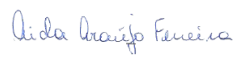 Aida Araújo Ferreira